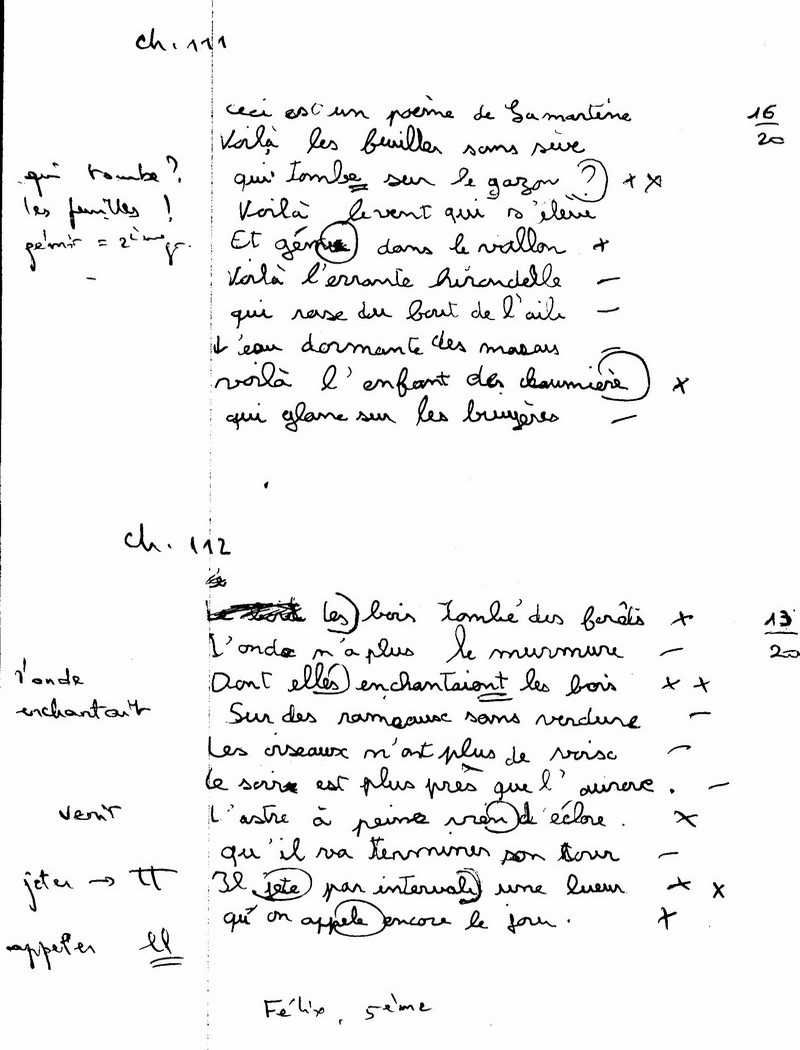 ch. 111
ceci est un poème de Lamartine
16/20
Voilà les feuilles sans sève
qui tombe sur le gazon ? + x
qui tombe ?
les feuilles !
Voilà levent qui s'élève
gémir = 2ième gr.
Et gémie dans le vallon +
Voilà l'errante hirondelle —
qui rase du bout de l'aile —
L'eau dormante des marais =
voilà l'enfant des chaumière x
qui glane sur les bruyères —
ch. 112
les bois tombé des forêts +
13/20
L'onde n'a plus le murmure —
Dont elles enchantaiont les bois x +
l'onde
enchantait
Sur des rameaux sans verdure —
Les oiseaux n'ont plus de voix —
Le soire est plus près que l'aurore. —
venir
L'astre à peine vien d'éclore. x
qu'il va terminer son tour —
jeter → TT
Il jete par intervale une lueur + x
qu'on appele encore le jour. +
appeler ll
Félix, 5ème